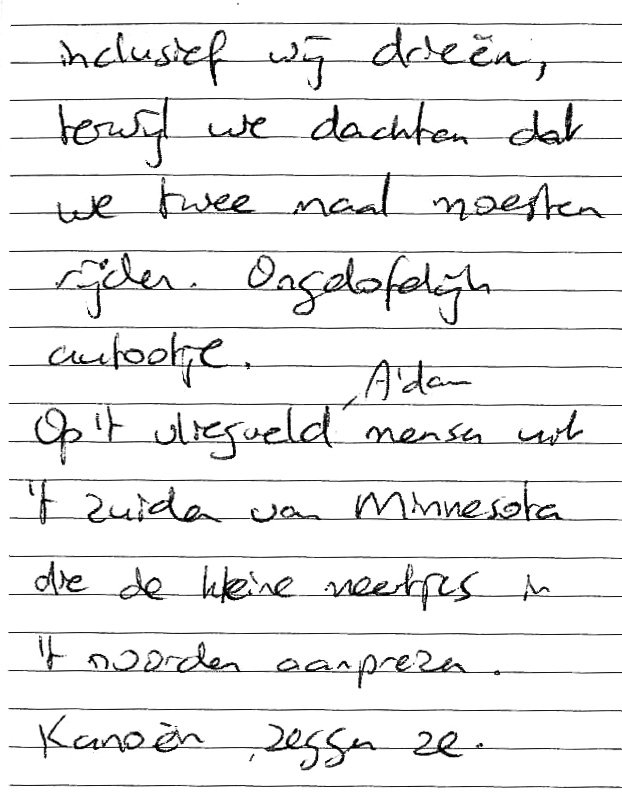 inclusief wij drieën,
terwijl we dachten dat
we twee maal moesten
rijden. Ongelofelijk
autootje.
A'dam
Op 't vliegveld mensen uit
't zuiden van Minnesota
die de kleine meertjes in
't noorden aanprezen.
Kanoën, zeggen ze.